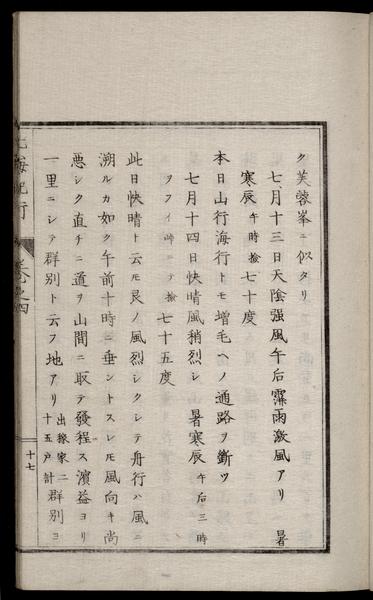 ク芙蓉峯ニ似タリ
七月十三日天陰强風午后霏雨激風アリ 暑
寒辰 午時捡 七十度
本日山行海行トモ増毛ヘノ通路ヲ斷ツ
七月十四日快晴風稍烈シ 暑寒辰 午后三時
ヲフイ岬ニテ捡 七十五度
此日快晴ト云モ艮ノ風烈シクシテ舟行ハ風ニ
溯ルカ如ク午前十時ニ垂ントスレモ風向キ尚
悪シク直チニ道ヲ山間ニ取テ發程ス濱益ヨリ
一里ニシテ群別ト云フ地アリ 出稼家二十五戸計 群別ヨ
北海紀行 巻之四
十七